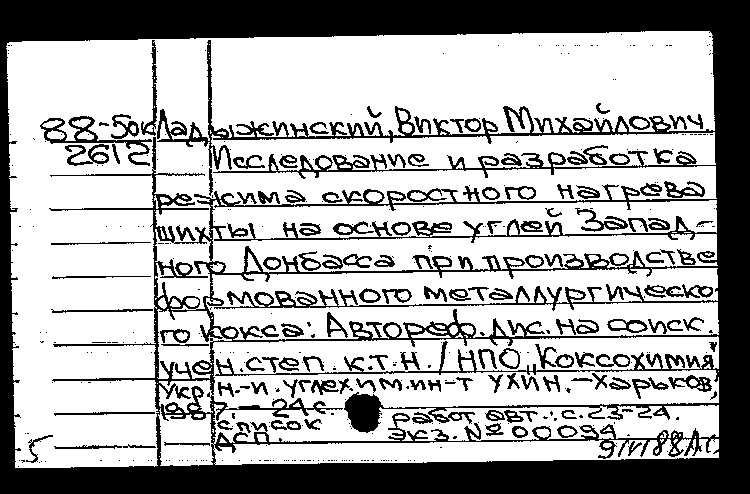 88-5окЛадыжинский, Виктор Михайлович.
2612 Исследование и разработка
режима скоростного нагрева
шихты на основе углей Запад-
ного Донбасса при производстве
формованного металлургическо-
го кокса: Автореф. дис. на соиск.
учен. степ. к.т.н. / НПО „Коксохимия",
Укр. н.-и. углехим. ин-т УХИН. - Харьков,
1987. - 24 с
список работ авт.: с. 23-24.
ДСП. Экз. № 00094
5 9/VI 88